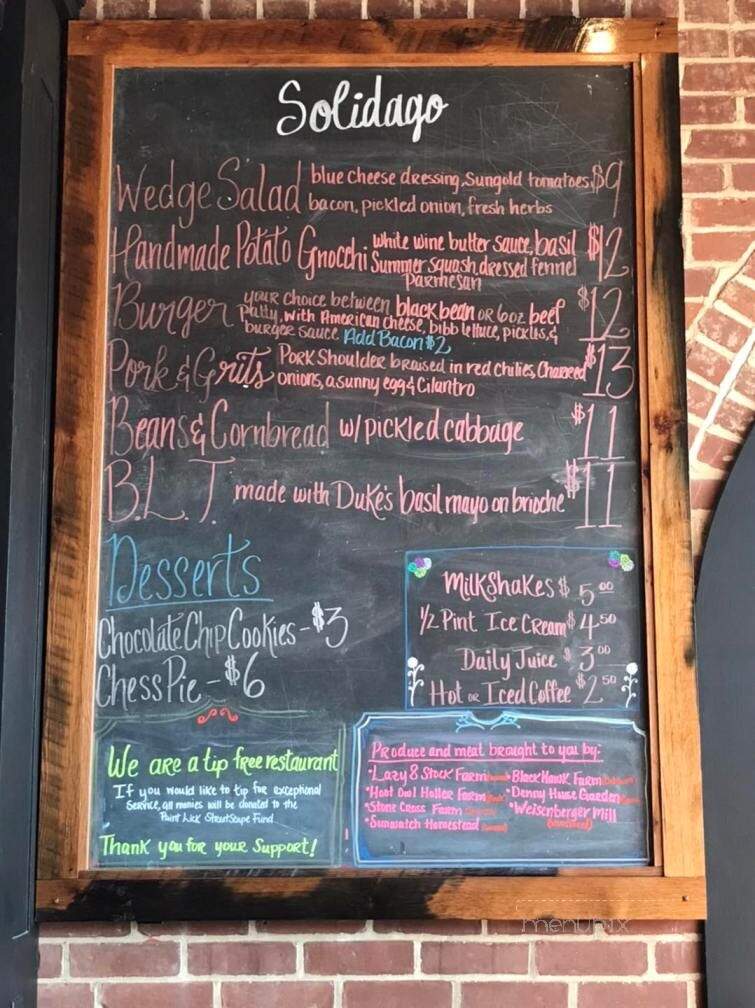 Solidago
Wedge Salad blue cheese dressing, Sungold tomatoes, $9
bacon, pickled onion, fresh herbs
Handmade Potato Gnocchi white wine butter sauce, basil $12
Summer squash, dressed fennel
Parmesan
Burger your choice between black bean or 6oz beef $12
patty, with American cheese, bibb lettuce, pickles, &
burger sauce Add Bacon $2
Pork & Grits Pork Shoulder braised in red chilies, Charred $13
onions, a sunny egg & Cilantro
Beans & Cornbread w/ pickled cabbage $11
B.L.T. made with Duke's basil mayo on brioche $11
Desserts
Chocolate Chip Cookies - $3
Chess Pie - $6
Milkshakes $5.00
1/2 Pint Ice Cream $4.50
Daily Juice $3.00
Hot or Iced Coffee $2.50
We are a tip free restaurant
If you would like to tip for exceptional
Service, all monies will be donated to the
Paint Lick Streetscape Fund.
Thank you for your Support!
Produce and meat brought to you by:
•Lazy 8 Stock Farm
•Hoot Owl Holler Farm
•Stone Cross Farm
•Sunwatch Homestead
•Black Hawk Farm
•Denny House Garden
•Weisenberger Mill
menupix